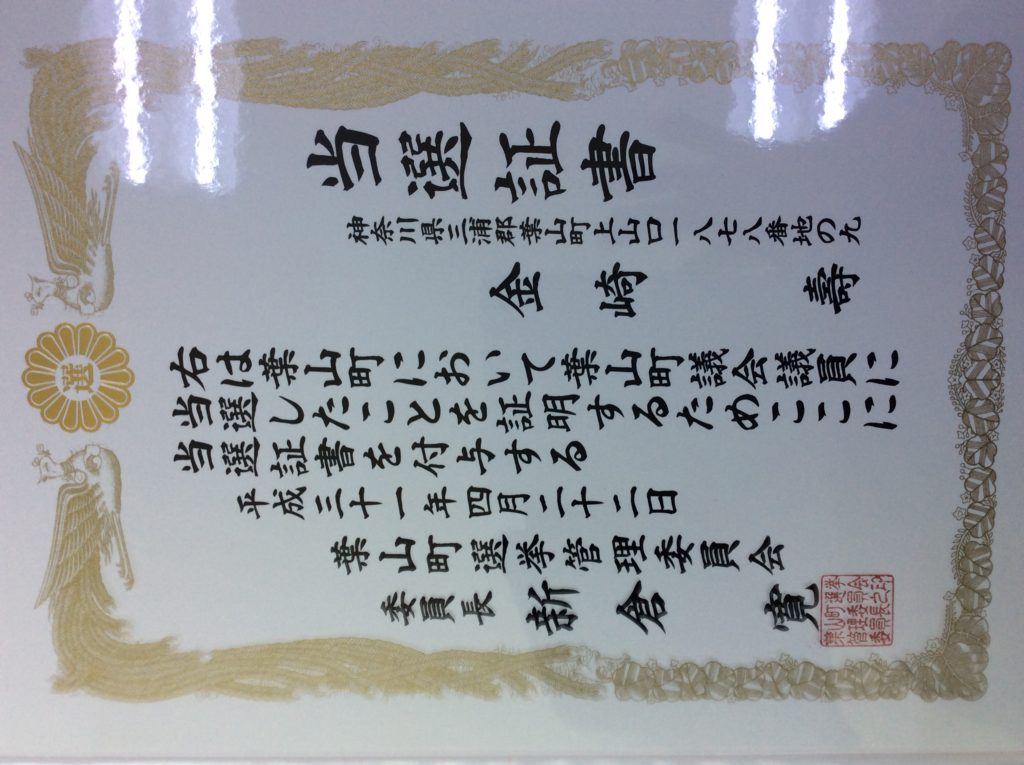 選
当選証書
神奈川県三浦郡葉山町上山口一八七八番地の九
金崎 壽
右は葉山町において葉山町議会議員に
当選したことを証明するためここに
当選証書を付与する
平成三十一年四月二十二日
葉山町選挙管理委員会
委員長 新倉 寛
葉山町選挙
管理委員会
委員長之印